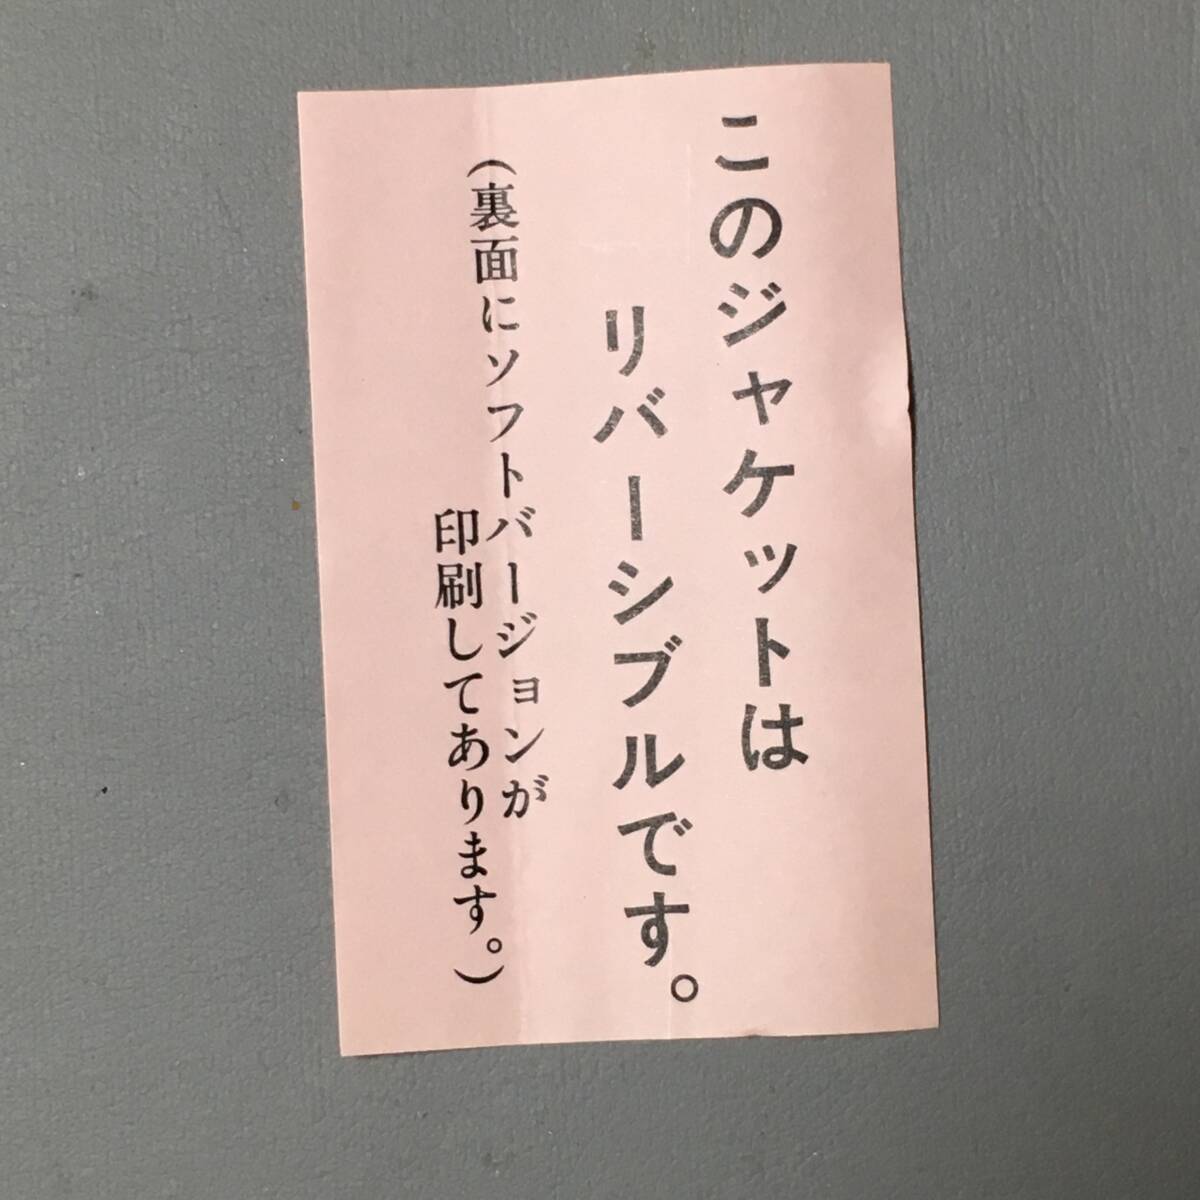 このジャケットは
リバーシブルです。
（裏面にソフトバージョンが
印刷してあります。）